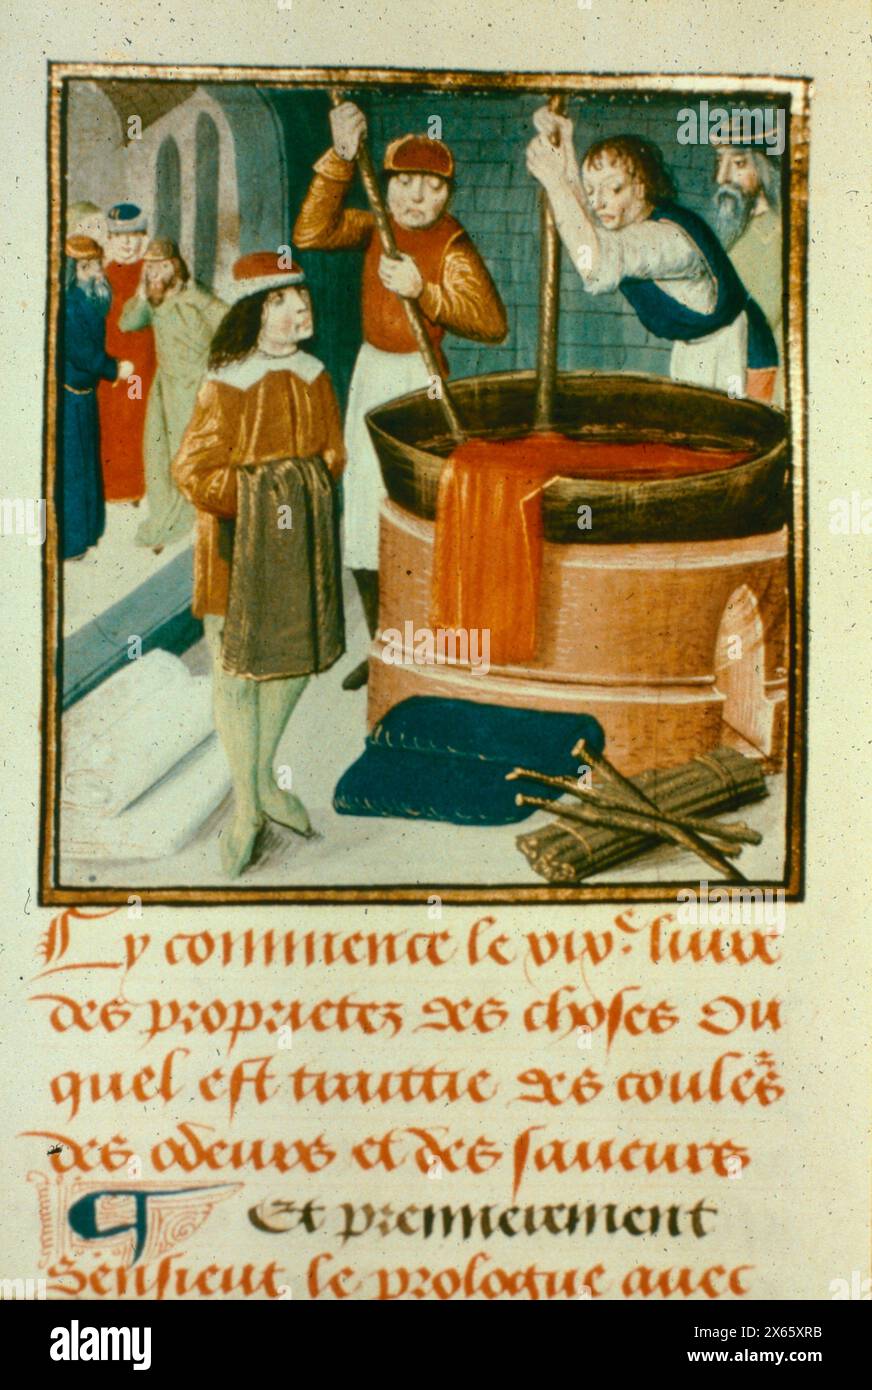 Cy commence le xixe. livre
des proprietez des choses Ou
quel est traittie des coule̅s
des odeurs et des saveurs
Et premierement
Sensieut le prologue avec
alamy
Image ID: 2X65XRB
www.alamy.com